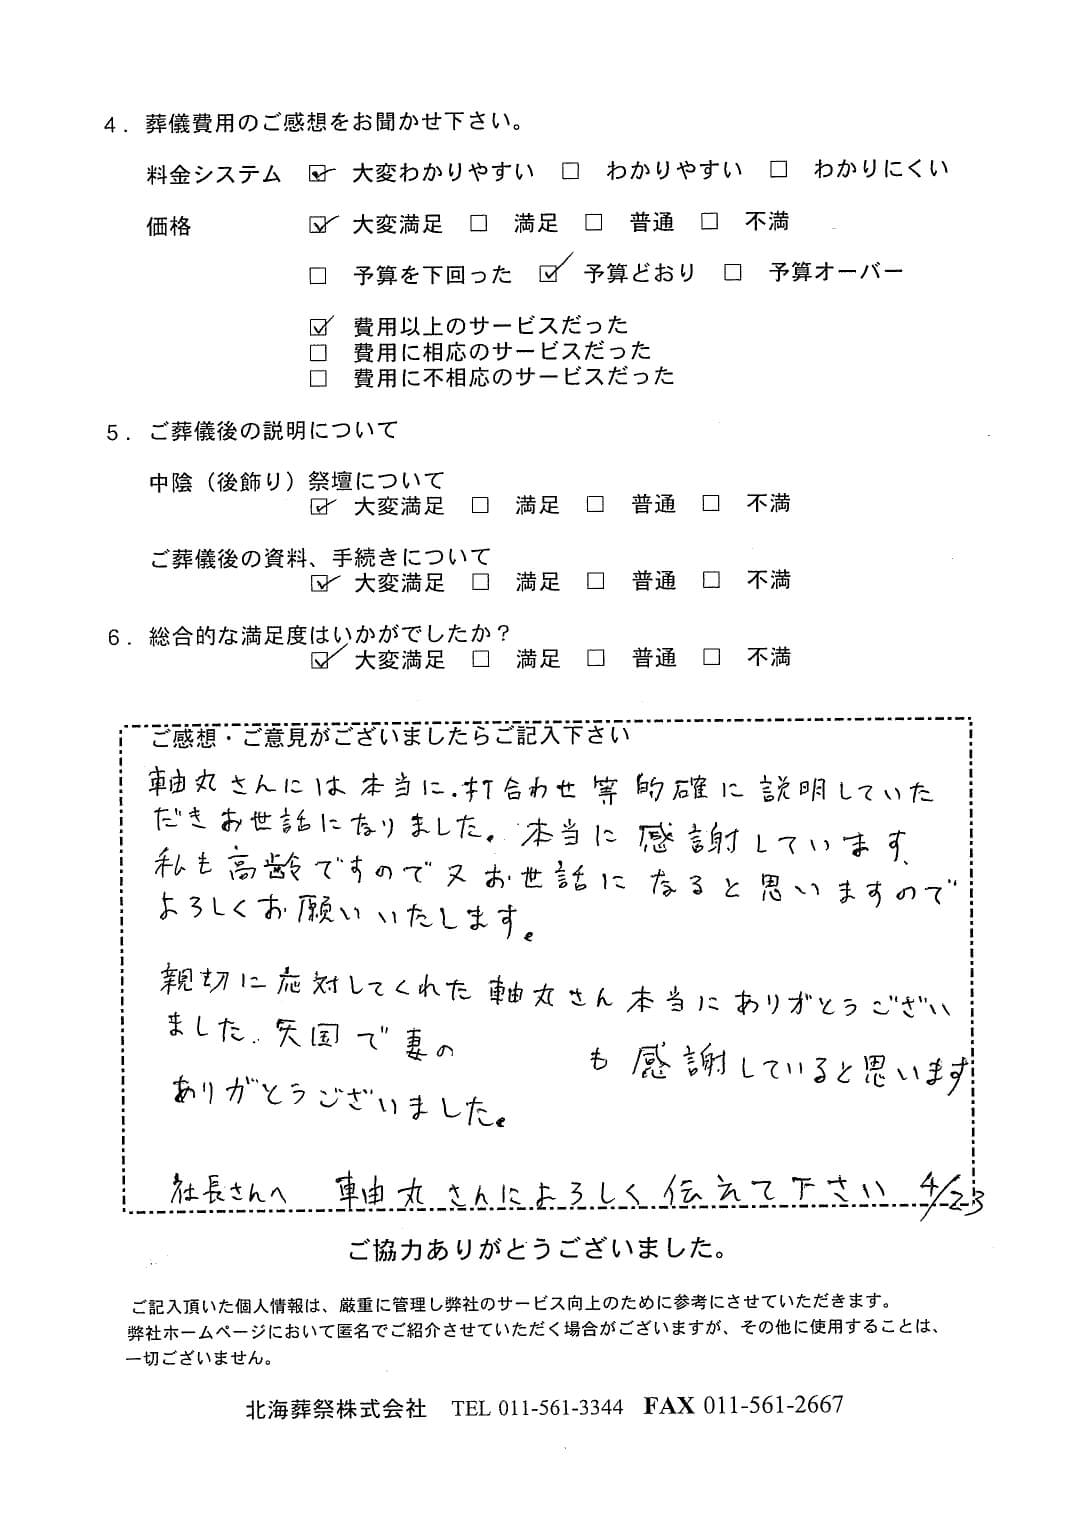 4．葬儀費用のご感想をお聞かせ下さい。
料金システム ☑ 大変わかりやすい □ わかりやすい □ わかりにくい
価格 ☑ 大変満足 □ 満足 □ 普通 □ 不満
□ 予算を下回った ☑ 予算どおり □ 予算オーバー
☑ 費用以上のサービスだった
□ 費用に相応のサービスだった
□ 費用に不相応のサービスだった
5．ご葬儀後の説明について
中陰（後飾り）祭壇について
☑ 大変満足 □ 満足 □ 普通 □ 不満
ご葬儀後の資料、手続きについて
☑ 大変満足 □ 満足 □ 普通 □ 不満
6．総合的な満足度はいかがでしたか？
☑ 大変満足 □ 満足 □ 普通 □ 不満
ご感想・ご意見がございましたらご記入下さい
軸丸さんには本当に.打合わせ等的確に説明していた
だきお世話になりました。本当に感謝しています、
私も高齢ですので又お世話になると思いますので
よろしくお願いいたします。
親切に応対してくれた軸丸さん本当にありがとうござい
ました.天国で妻の も感謝していると思います
ありがとうございました。
社長さんへ 軸丸さんによろしく伝えて下さい 4/23
ご協力ありがとうございました。
ご記入頂いた個人情報は、厳重に管理し弊社のサービス向上のために参考にさせていただきます。
弊社ホームページにおいて匿名でご紹介させていただく場合がございますが、その他に使用することは、
一切ございません。
北海葬祭株式会社 TEL 011-561-3344 FAX 011-561-2667